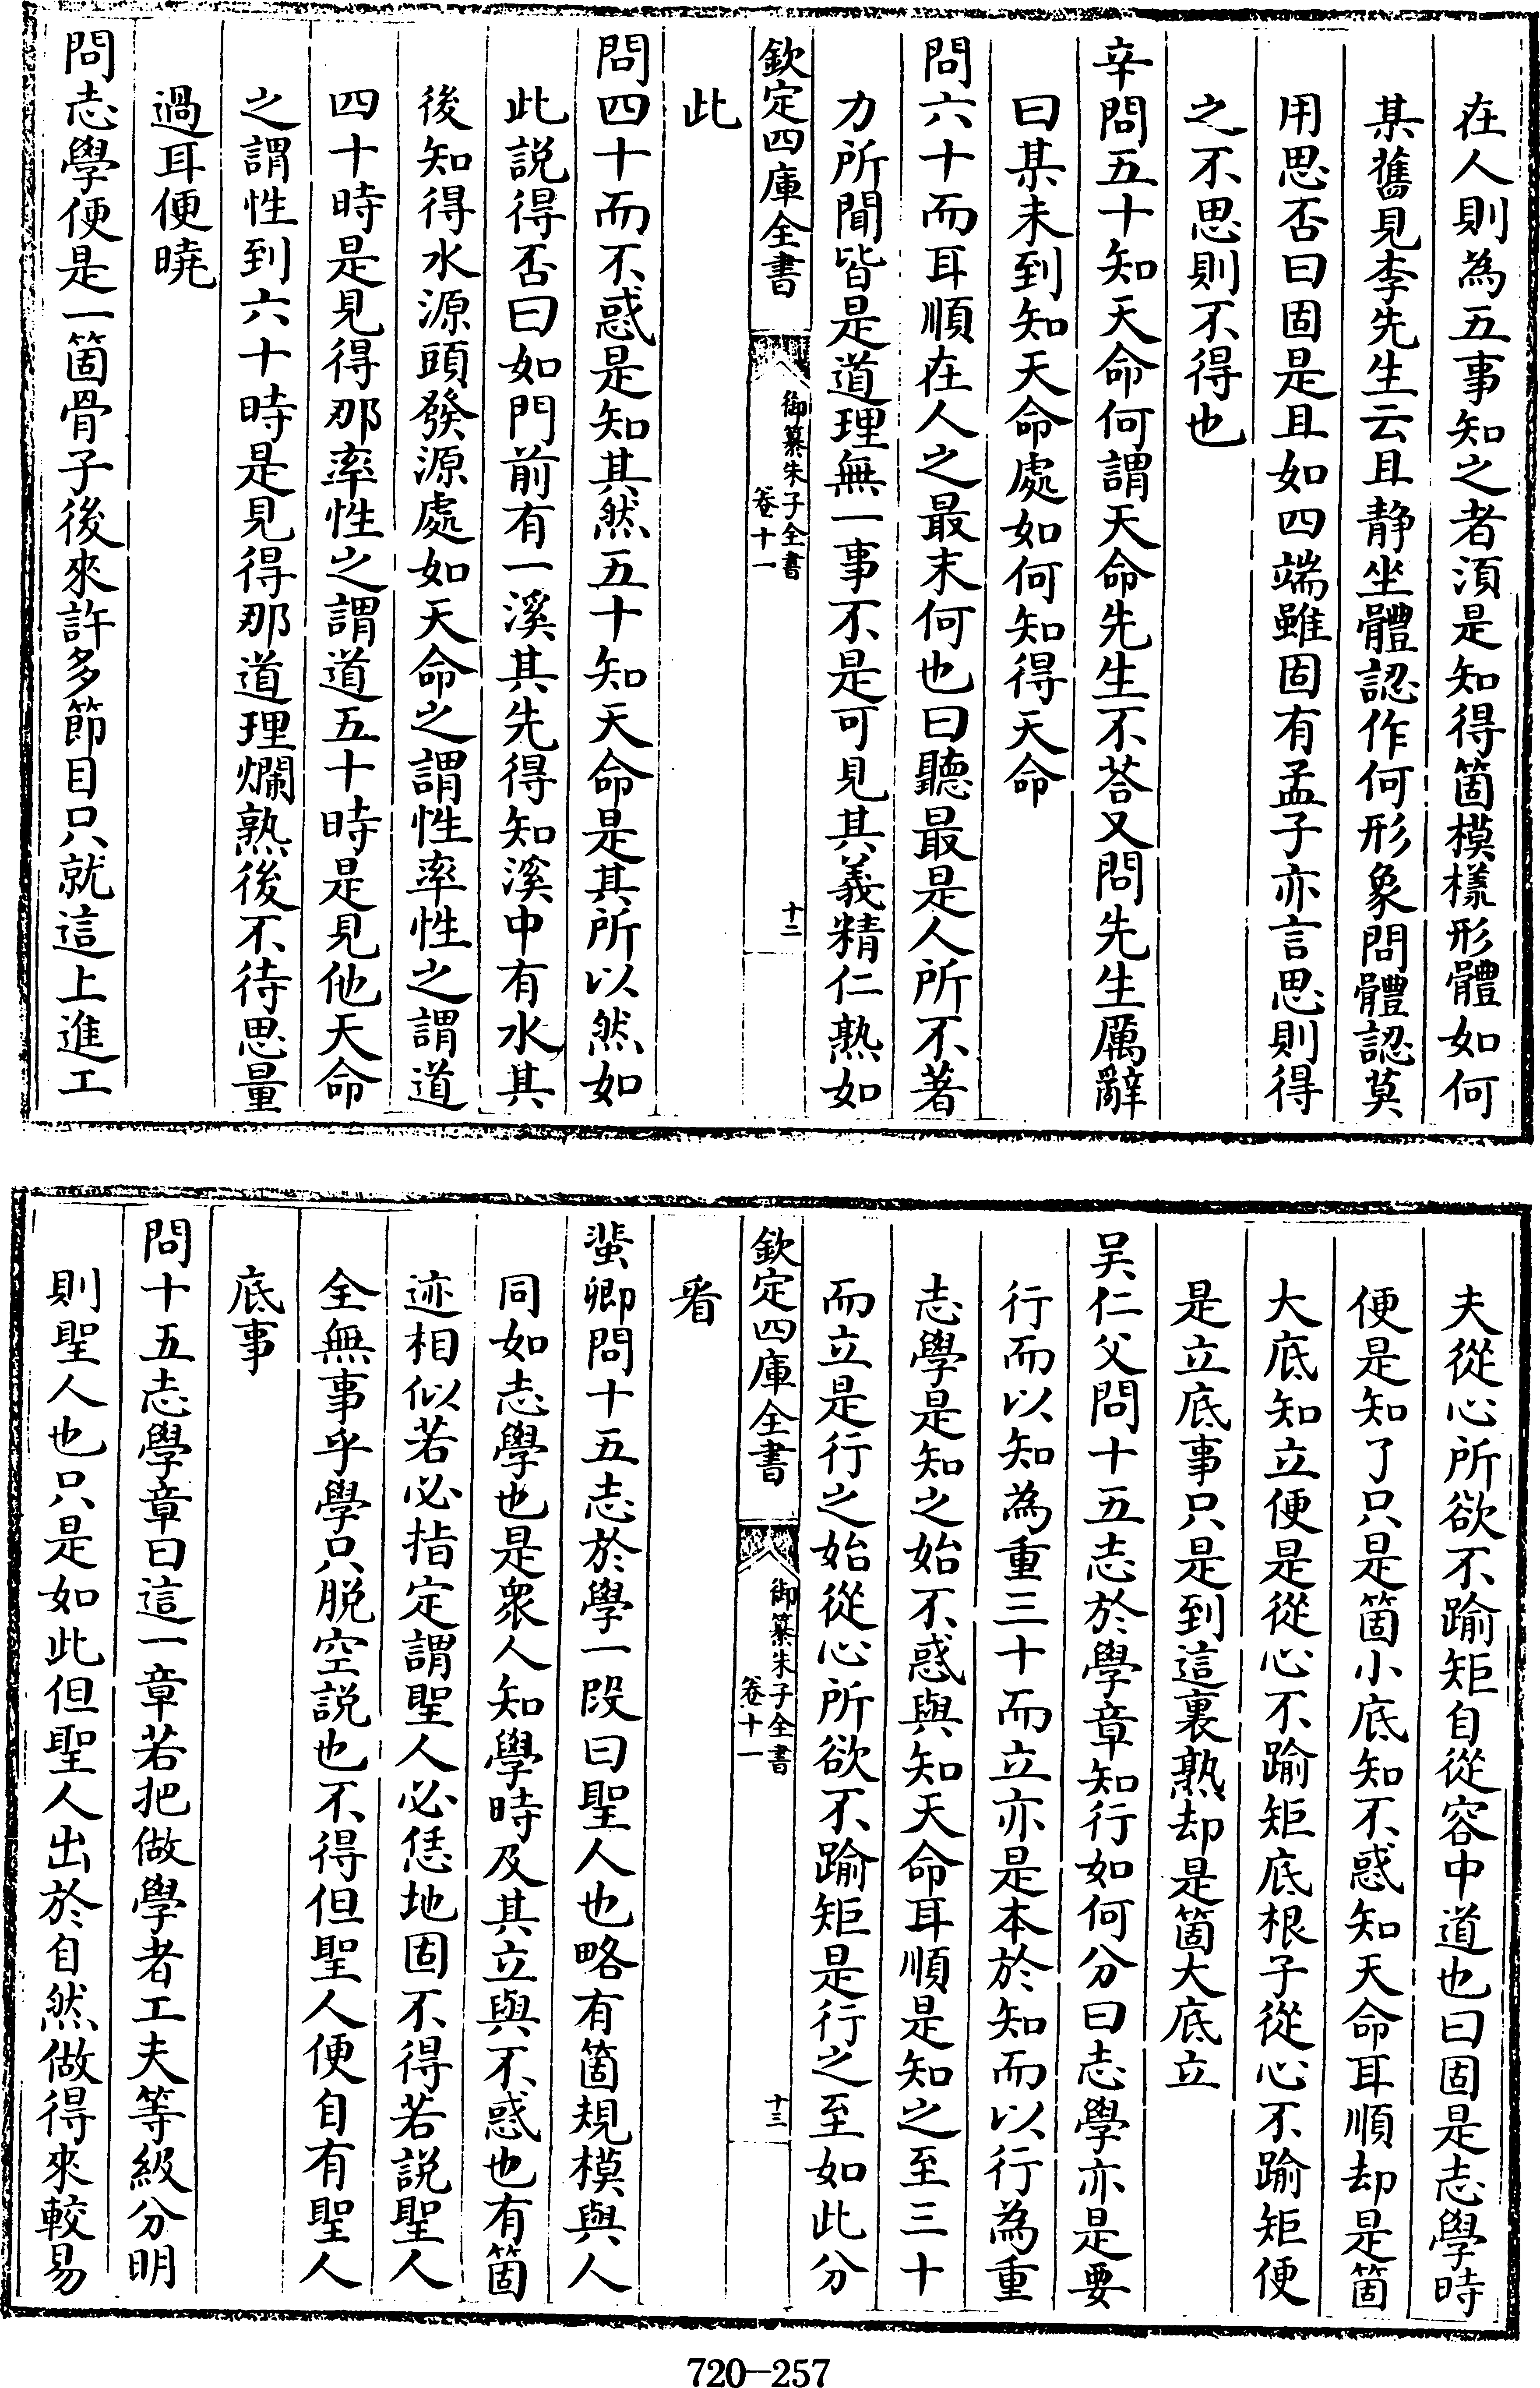 在人則為五事知之者湏是知得箇模樣形體如何
某舊見李先生云且静坐體認作何形象問體認莫
用思否曰固是且如四端雖固有孟子亦言思則得
之不思則不得也
辛問五十知天命何謂天命先生不荅又問先生厲辭
曰某未到知天命處如何知得天命
問六十而耳順在人之最末何也曰聽最是人所不著
力所聞皆是道理無一事不是可見其義精仁熟如
欽定四庫全書
御纂朱子全書
卷十一
十二
此
問四十而不惑是知其然五十知天命是其所以然如
此說得否曰如門前有一溪其先得知溪中有水其
後知得水源頭發源處如天命之謂性率性之謂道
四十時是見得那率性之謂道五十時是見他天命
之謂性到六十時是見得那道理爛熟後不待思量
過耳便曉
問志學便是一箇骨子後來許多節目只就這上進工
夫從心所欲不踰矩自從容中道也曰固是志學時
便是知了只是箇小底知不惑知天命耳順却是箇
大底知立便是從心不踰矩底根子從心不踰矩便
是立底事只是到這裏熟却是箇大底立
吳仁父問十五志於學章知行如何分曰志學亦是要
行而以知為重三十而立亦是本於知而以行為重
志學是知之始不惑與知天命耳順是知之至三十
而立是行之始從心所欲不踰矩是行之至如此分
欽定四庫全書
御纂朱子全書
卷十一
十三
看
蜚卿問十五志於學一段曰聖人也略有箇規模與人
同如志學也是衆人知學時及其立與不惑也有箇
迹相似若必指定謂聖人必恁地固不得若說聖人
全無事乎學只脫空說也不得但聖人便自有聖人
底事
問十五志學章曰這一章若把做學者工夫等級分明
則聖人也只是如此但聖人出於自然做得來較易
720—257